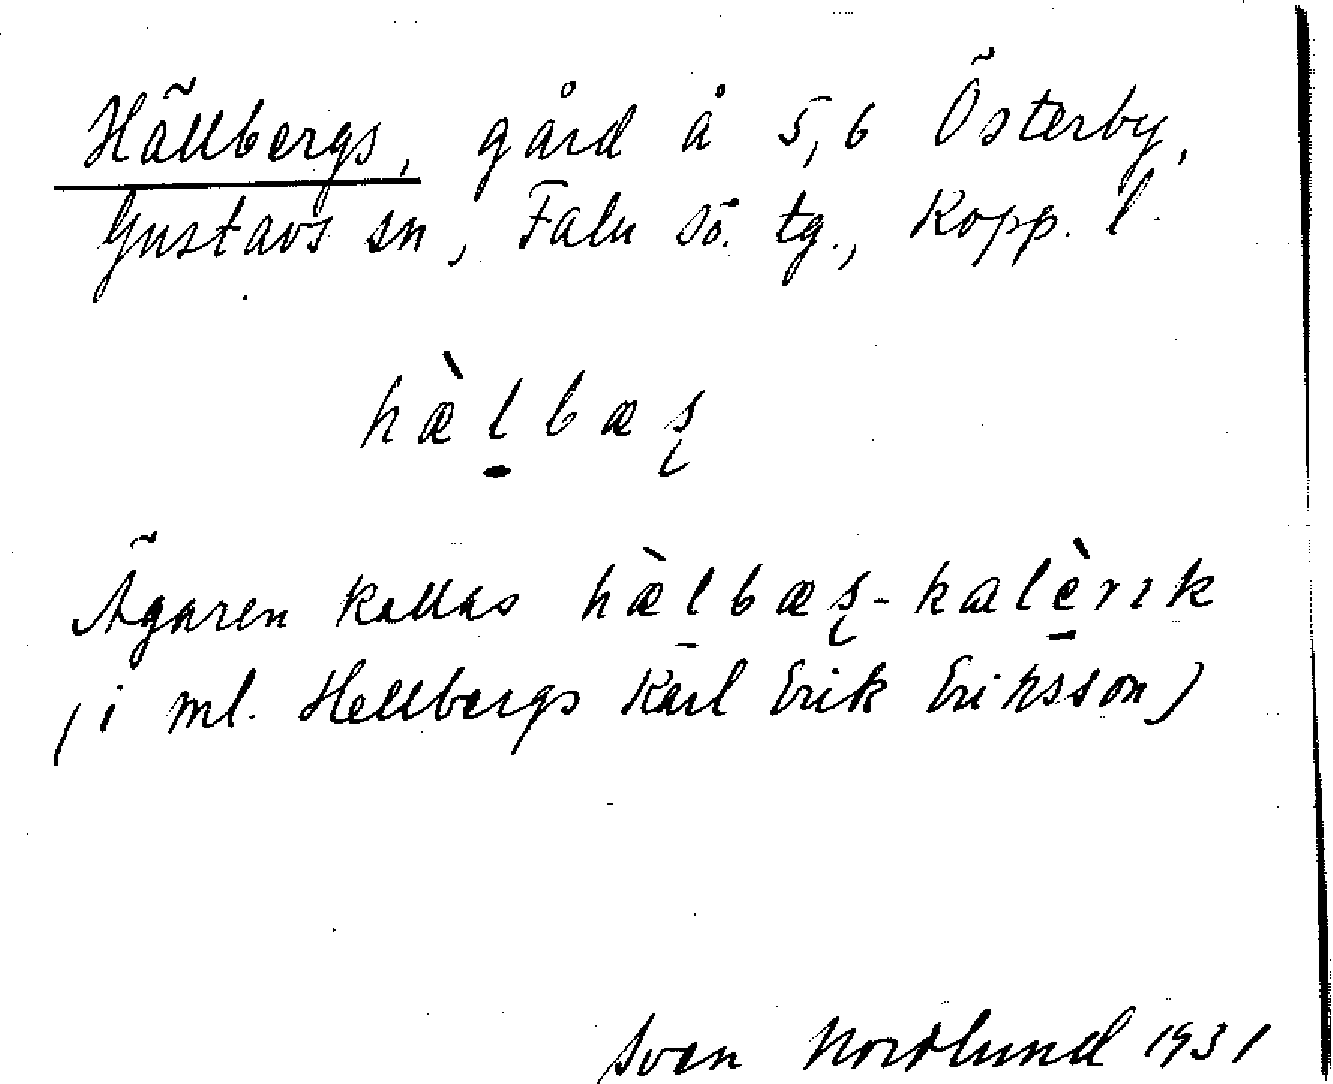 Hällbergs, gård å 5,6 Österby,
Gustavs sn, Falu sö. tg., Kopp. l.
hæ̀l̠bæʂ
Ägaren kallas hæ̀l̠bæʂ-kalè̠rɪk
(i ml. Hellbergs Karl Erik Eriksson)
Sven Nordlund 1931